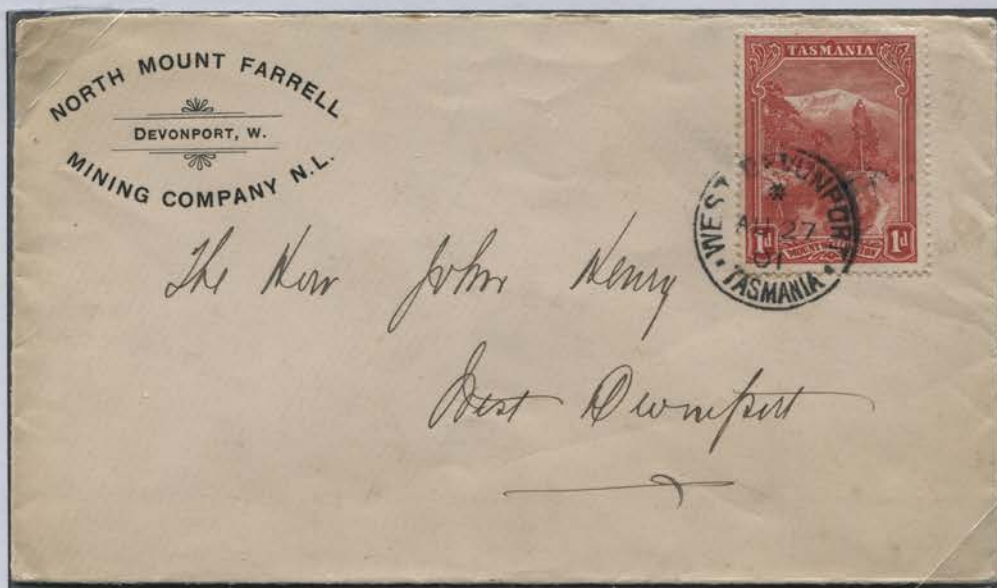 NORTH MOUNT FARRELL
DEVONPORT, W.
MINING COMPANY N.L.
TASMANIA
1d 1d
MOUNT
WEST DEVONPORT
AU 27
01
TASMANIA
The Hon John Henry
West Devonport